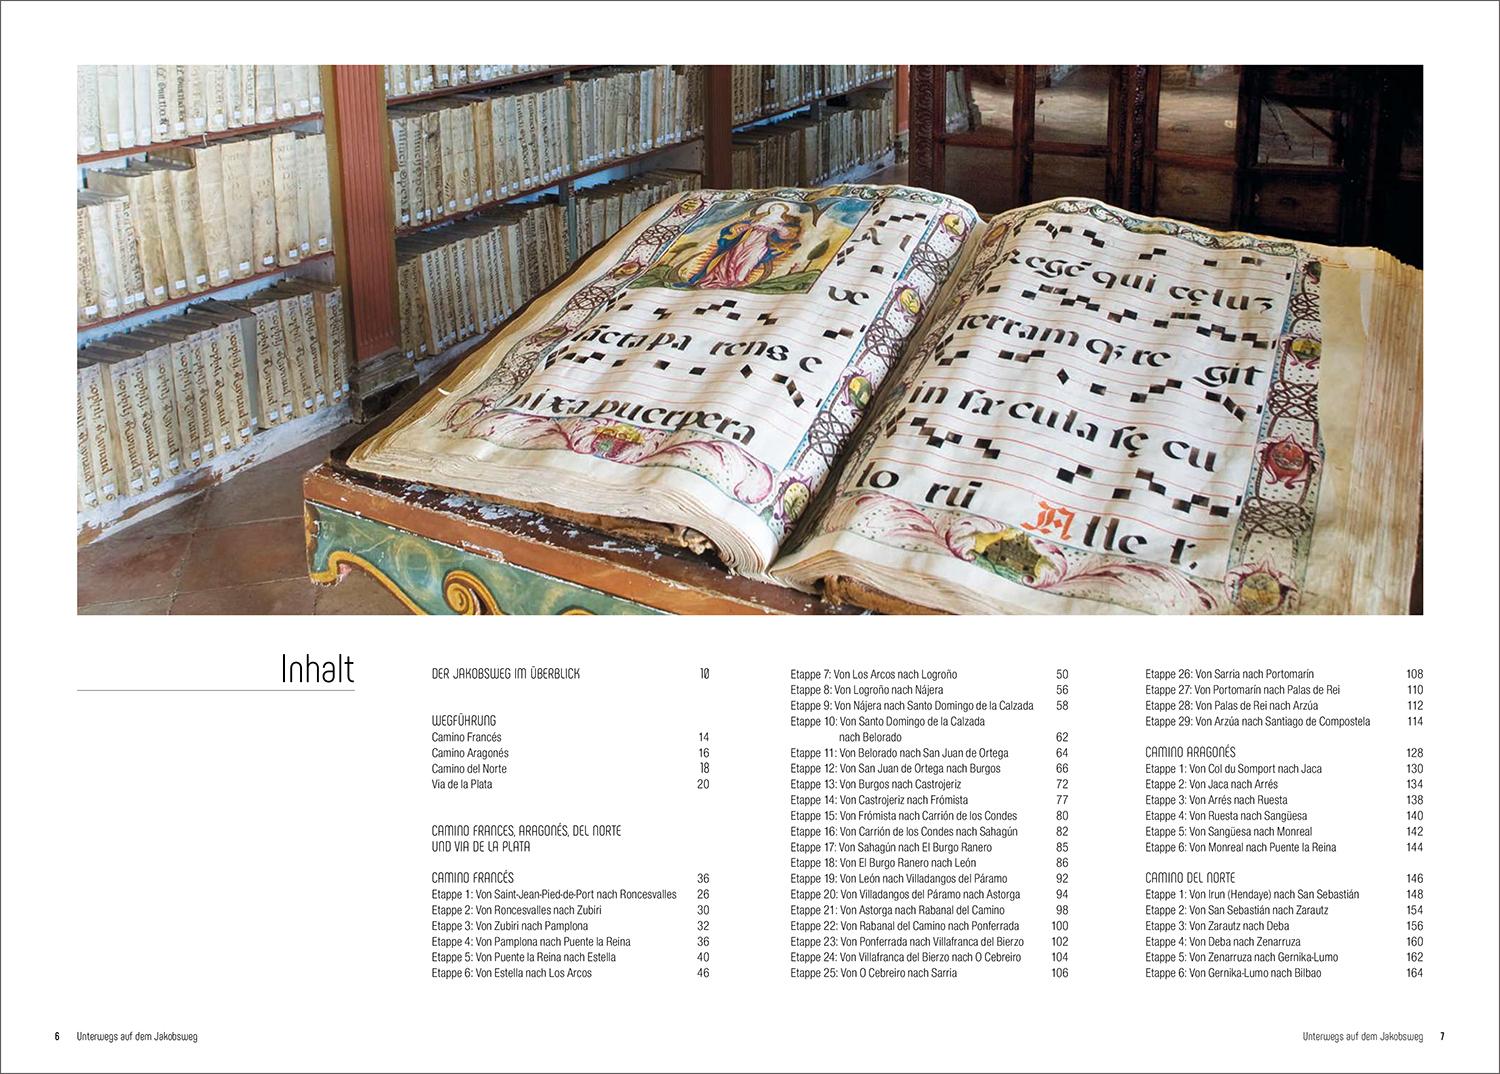 ve
Regē qui cęluz
terram qȝ re git
in sæcula sę cu
puerpera
lo rū Alle t.
Inhalt
DER JAKOBSWEG IM ÜBERBLICK 10
WEGFÜHRUNG
Camino Francés 14
Camino Aragonés 16
Camino del Norte 18
Via de la Plata 20
CAMINO FRANCES, ARAGONÉS, DEL NORTE
UND VIA DE LA PLATA
CAMINO FRANCÉS 36
Etappe 1: Von Saint-Jean-Pied-de-Port nach Roncesvalles 26
Etappe 2: Von Roncesvalles nach Zubiri 30
Etappe 3: Von Zubiri nach Pamplona 32
Etappe 4: Von Pamplona nach Puente la Reina 36
Etappe 5: Von Puente la Reina nach Estella 40
Etappe 6: Von Estella nach Los Arcos 46
Etappe 7: Von Los Arcos nach Logroño 50
Etappe 8: Von Logroño nach Nájera 56
Etappe 9: Von Nájera nach Santo Domingo de la Calzada 58
Etappe 10: Von Santo Domingo de la Calzada
nach Belorado 62
Etappe 11: Von Belorado nach San Juan de Ortega 64
Etappe 12: Von San Juan de Ortega nach Burgos 66
Etappe 13: Von Burgos nach Castrojeriz 72
Etappe 14: Von Castrojeriz nach Frómista 77
Etappe 15: Von Frómista nach Carrión de los Condes 80
Etappe 16: Von Carrión de los Condes nach Sahagún 82
Etappe 17: Von Sahagún nach El Burgo Ranero 85
Etappe 18: Von El Burgo Ranero nach León 86
Etappe 19: Von León nach Villadangos del Páramo 92
Etappe 20: Von Villadangos del Páramo nach Astorga 94
Etappe 21: Von Astorga nach Rabanal del Camino 98
Etappe 22: Von Rabanal del Camino nach Ponferrada 100
Etappe 23: Von Ponferrada nach Villafranca del Bierzo 102
Etappe 24: Von Villafranca del Bierzo nach O Cebreiro 104
Etappe 25: Von O Cebreiro nach Sarria 106
Etappe 26: Von Sarria nach Portomarín 108
Etappe 27: Von Portomarín nach Palas de Rei 110
Etappe 28: Von Palas de Rei nach Arzúa 112
Etappe 29: Von Arzúa nach Santiago de Compostela 114
CAMINO ARAGONÉS 128
Etappe 1: Von Col du Somport nach Jaca 130
Etappe 2: Von Jaca nach Arrés 134
Etappe 3: Von Arrés nach Ruesta 138
Etappe 4: Von Ruesta nach Sangüesa 140
Etappe 5: Von Sangüesa nach Monreal 142
Etappe 6: Von Monreal nach Puente la Reina 144
CAMINO DEL NORTE 146
Etappe 1: Von Irun (Hendaye) nach San Sebastián 148
Etappe 2: Von San Sebastián nach Zarautz 154
Etappe 3: Von Zarautz nach Deba 156
Etappe 4: Von Deba nach Zenarruza 160
Etappe 5: Von Zenarruza nach Gernika-Lumo 162
Etappe 6: Von Gernika-Lumo nach Bilbao 164
6 Unterwegs auf dem Jakobsweg
Unterwegs auf dem Jakobsweg 7